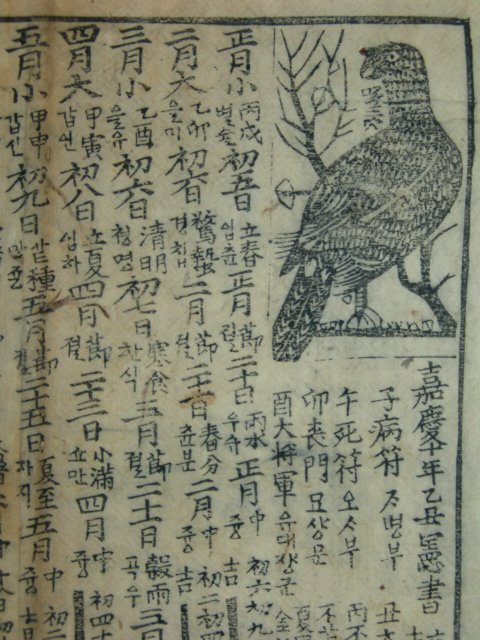 嘉慶十年乙丑憲書
子病符 ᄌᆞ병부 丑
午死符 오ᄉᆞ부 不
卯喪門 묘상문
酉大將軍 유대장군
正月小 丙戌 병슐 初五日 立春 입츈 正月節 졀 二十日 雨水 우슈 正月中 즁 吉 初六 初九
二月大 乙卯 을묘 初六日 驚蟄 경칩 二月節 졀 二十一日 春分 츈분 二月中 즁 吉 初二 初四
三月小 乙酉 을유 初六日 淸明 쳥명 初七日 寒食 한식 三月節 졀 二十一日 穀雨 곡우 三月
四月大 甲寅 갑인 初八日 立夏 입하 四月節 졀 二十三日 小滿 쇼만 四月中 즁 初四
五月小 甲申 갑신 初九日 芒種 망죵 五月節 졀 二十五日 夏至 하지 五月中 즁 吉 初二